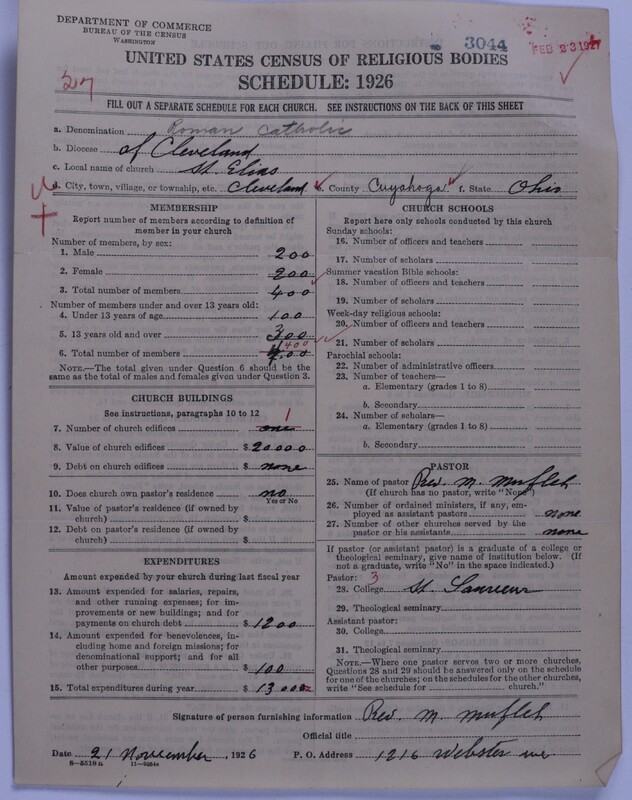 DEPARTMENT OF COMMERCE
BUREAU OF THE CENSUS
WASHINGTON
3044
FEB 23 1927
UNITED STATES CENSUS OF RELIGIOUS BODIES
SCHEDULE: 1926
27
FILL OUT A SEPARATE SCHEDULE FOR EACH CHURCH. SEE INSTRUCTIONS ON THE BACK OF THIS SHEET
a. Denomination Roman Catholic
b. Diocese of Cleveland
c. Local name of church St. Elias
d. City, town, village, or township, etc. Cleveland e. County Cuyahoga f. State Ohio
MEMBERSHIP
Report number of members according to definition of
member in your church
Number of members, by sex:
1. Male 200
2. Female 200
3. Total number of members 400
Number of members under and over 13 years old:
4. Under 13 years of age 100
5. 13 years old and over 300
6. Total number of members 400
NOTE.—The total given under Question 6 should be the
same as the total of males and females given under Question 3.
CHURCH BUILDINGS
See instructions, paragraphs 10 to 12
7. Number of church edifices one 1
8. Value of church edifices $20000
9. Debt on church edifices $none
10. Does church own pastor's residence no
Yes or No
11. Value of pastor's residence (if owned by
church) $
12. Debt on pastor's residence (if owned by
church) $
EXPENDITURES
Amount expended by your church during last fiscal year
13. Amount expended for salaries, repairs,
and other running expenses; for im-
provements or new buildings; and for
payments on church debt $1200
14. Amount expended for benevolences, in-
cluding home and foreign missions; for
denominational support; and for all
other purposes $100
15. Total expenditures during year $1300
CHURCH SCHOOLS
Report here only schools conducted by this church
Sunday schools:
16. Number of officers and teachers
17. Number of scholars
Summer vacation Bible schools:
18. Number of officers and teachers
19. Number of scholars
Week-day religious schools:
20. Number of officers and teachers
21. Number of scholars
Parochial schools:
22. Number of administrative officers
23. Number of teachers—
a. Elementary (grades 1 to 8)
b. Secondary
24. Number of scholars—
a. Elementary (grades 1 to 8)
b. Secondary
PASTOR
25. Name of pastor Rev. M. Mufleh
(If church has no pastor, write "None")
26. Number of ordained ministers, if any, em-
ployed as assistant pastors none
27. Number of other churches served by the
pastor or his assistants none
If pastor (or assistant pastor) is a graduate of a college or
theological seminary, give name of institution below. (If
not a graduate, write "No" in the space indicated.)
Pastor: 3
28. College St.
29. Theological seminary
Assistant pastor:
30. College
31. Theological seminary
NOTE.—Where one pastor serves two or more churches,
Questions 28 and 29 should be answered only on the schedule
for one of the churches; on the schedules for the other churches,
write "See schedule for church."
Signature of person furnishing information Rev. M. Mufleh
Official title
Date 21 November, 1926 P. O. Address 1216 Webster ave